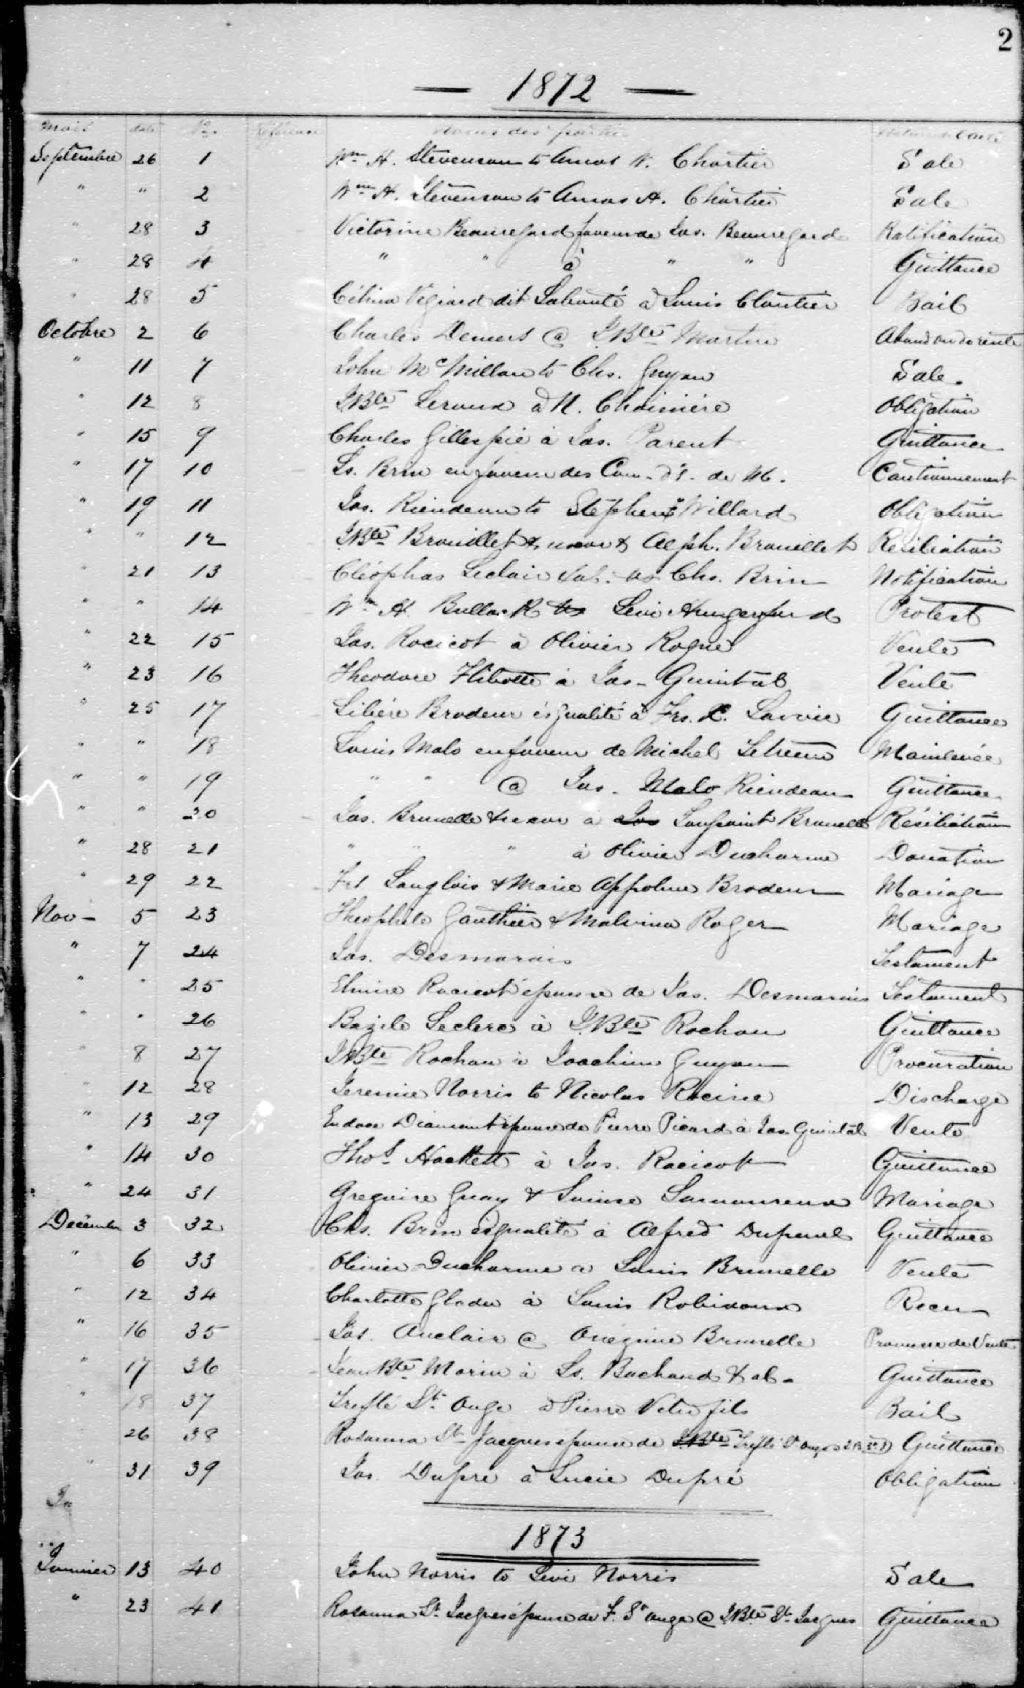 2
— 1872 —
Mois date No. Référence Noms des parties Nature de l'acte
Septembre 26 1 Wm H. Stevenson to Amos N. Chartier Sale
" " 2 Wm H. Stevenson to Amos A. Chartier Sale
" 28 3 Victorine Beauregard faveur de Jos. Beauregard Ratification
" 28 4 " " à " " Quittance
" 28 5 Célina Végiard dit Labonté à Louis Cloutier Bail
Octobre 2 6 Charles Demers @ J.Bte Martin Abandon de rente
" 11 7 John McMillan to Chs. Guyon Sale.
" 12 8 J.Bte Leroux à N. Choinière Obligation
" 15 9 Charles Gillespie à Jos. Parent Quittance
" 17 10 Ls. Brin en faveur des Com. d'É. de M. Cautionnement
" 19 11 Jos. Riendeau to Stephen Willard Obligation
" " 12 J.Bte Brouillet & uxor & Alph. Brouillet Résiliation
" 21 13 Cléophas Leclair Chs. Brin Notification
" " 14 Wm H. Bullock Levi Hungerford Protest
" 22 15 Jos. Racicot à Olivier Rogné Vente
" 23 16 Theodore Flibotte à Jos. Quintal Vente
" 25 17 Libère Brodeur ésqualité à Frs. X. Lavoie Quittance
" " 18 Louis Malo en faveur de Michel Mainlevée
" " 19 " " @ Jos. Malo Riendeau Quittance
" " 20 Jos. Brunelle & uxor à Jos Toussaint Brunelle Résiliation
" 28 21 " " " à Olivier Ducharme Donation
" 29 22 Frs Langlois & Marie Appoline Brodeur Mariage
Nov– 5 23 Theophile Gauthier & Malvina Roger Mariage
" 7 24 Jos. Desmarais Testament
" " 25 Elmire Racicot épouse de Jos. Desmarais Testament
" " 26 Bazile Leclerc à J.Bte Rochon Quittance
" 8 27 J.Bte Rochon à Joachim Guyon Procuration
" 12 28 Jeremie Norris to Nicolas Racine Discharge
" 13 29 Eudoxe Diamant épouse de Pierre Picard à Jos. Quintal Vente
" 14 30 Thos. Hackett à Jos. Racicot Quittance
" 24 31 Gregoire Guay & Louise Lamoureux Mariage
Décembre 3 32 Chs. Brin ésqualité à Alfred Dupuel Quittance
" 6 33 Olivier Ducharme à Louis Brunelle Vente
" 12 34 Charlotte Gladu à Louis Robidoux Recu
" 16 35 Jos. Auclair @ Onézime Brunelle Promesse de Vente
" 17 36 Jean Bte Morin à Ls. Bachand & al. Quittance
" 18 37 Trefflé St Onge à Pierre fils Bail
" 26 38 Rosanna St Jacques épouse de J.Bte Trefflé St Onge Quittance
" 31 39 Jos. Dupré à Lucie Dupré Obligation
Ja
1873
Janvier 13 40 John Norris to Levi Norris Sale
" 23 41 Rosanna St Jacques épouse de F. St Onge @ J.Bte St Jacques Quittance